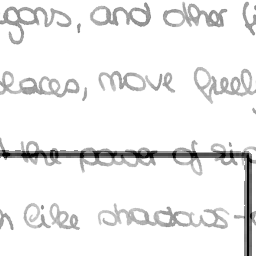 gons, and other fi
places, move freel
the power of
like shadows